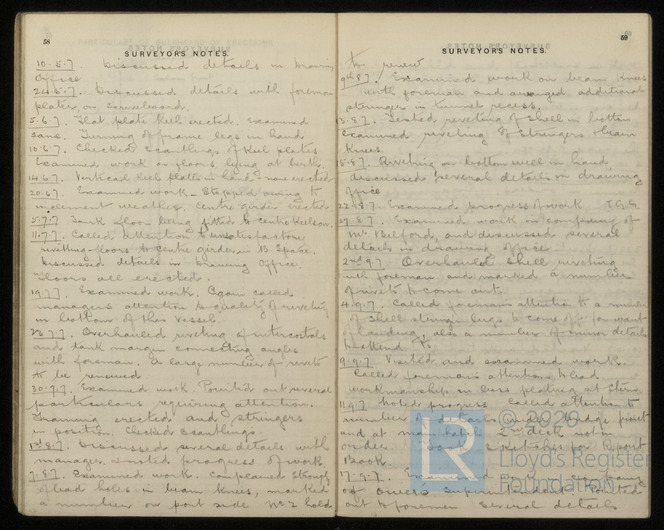 58
SURVEYOR'S NOTES.
10.5.7. Discussed details in Drawing
Office
24.5.7. Discussed details with foreman
plater, on Scrieveboard.
5.6.7. Flat plate keel erected. Examined
same. Turning of frame legs in hand
10.6.7. Checked scantlings of keel plates
Examined work on floors lying at berth.
14.6.7. Vertical keel plates in hand - none erected
20.6.7. Examined work - Stopped owing to
inclement weather, centre girder erected
5.7.7. Tank floors being fitted to centre keelson.
11.7.7. Called attention to unsatisfactory
riveting - floors to centre girder in
Discussed details in Drawing Office.
Floors all erected.
19.7.7. Examined work. Again called
managers attention to quality of riveting
in bottom of this vessel.
23.7.7. Overhauled riveting of intercostals
and tank margin connecting angles
with foreman. A large number of rivets
to be renewed
30.7.7. Examined work. Pointed out several
particulars requiring attention.
Framing erected and stringers
in position. Checked scantlings.
1st 8.7. Discussed several details with
manager & noted progress of work.
7.8.7. Examined work. Complained strongly
of bad holes in beam knees, marked
a number on port side No 2 hold
59
SURVEYOR'S NOTES.
to renew
9th 8.7. Examined work on beam knees
with foreman and arranged additional
stringer in tunnel recess.
13.8.7. Tested riveting of shell in bottom
Examined riveting of stringers & beam
knees.
15.8.7. Riveting on bottom well in hand
discussed several details in drawing
office
22.8.7. Examined progress of work
27.8.7. Examined work in company of
Mr Belford, and discussed several
details in drawing office
2nd 9.7. Overhauled shell riveting
with foreman and marked a number
of rivets to come out.
4.9.7. Called foreman's attention to a number
of shell string lugs to come off for want
of landing, also a number of minor details
to attend to
9.9.7. Visited and examined work.
Called foreman's attention to bad
workmanship in boss plating at Stern
11.9.7. Noted progress called attention to
number of details under bridge
and at main hatch 2nd deck not in
order. Took sketches for Report
Book.
17.9.7.
of Owners Superintendent. Pointed
out to foremen several details
© 2020
LR
Lloyd's Register
Foundation